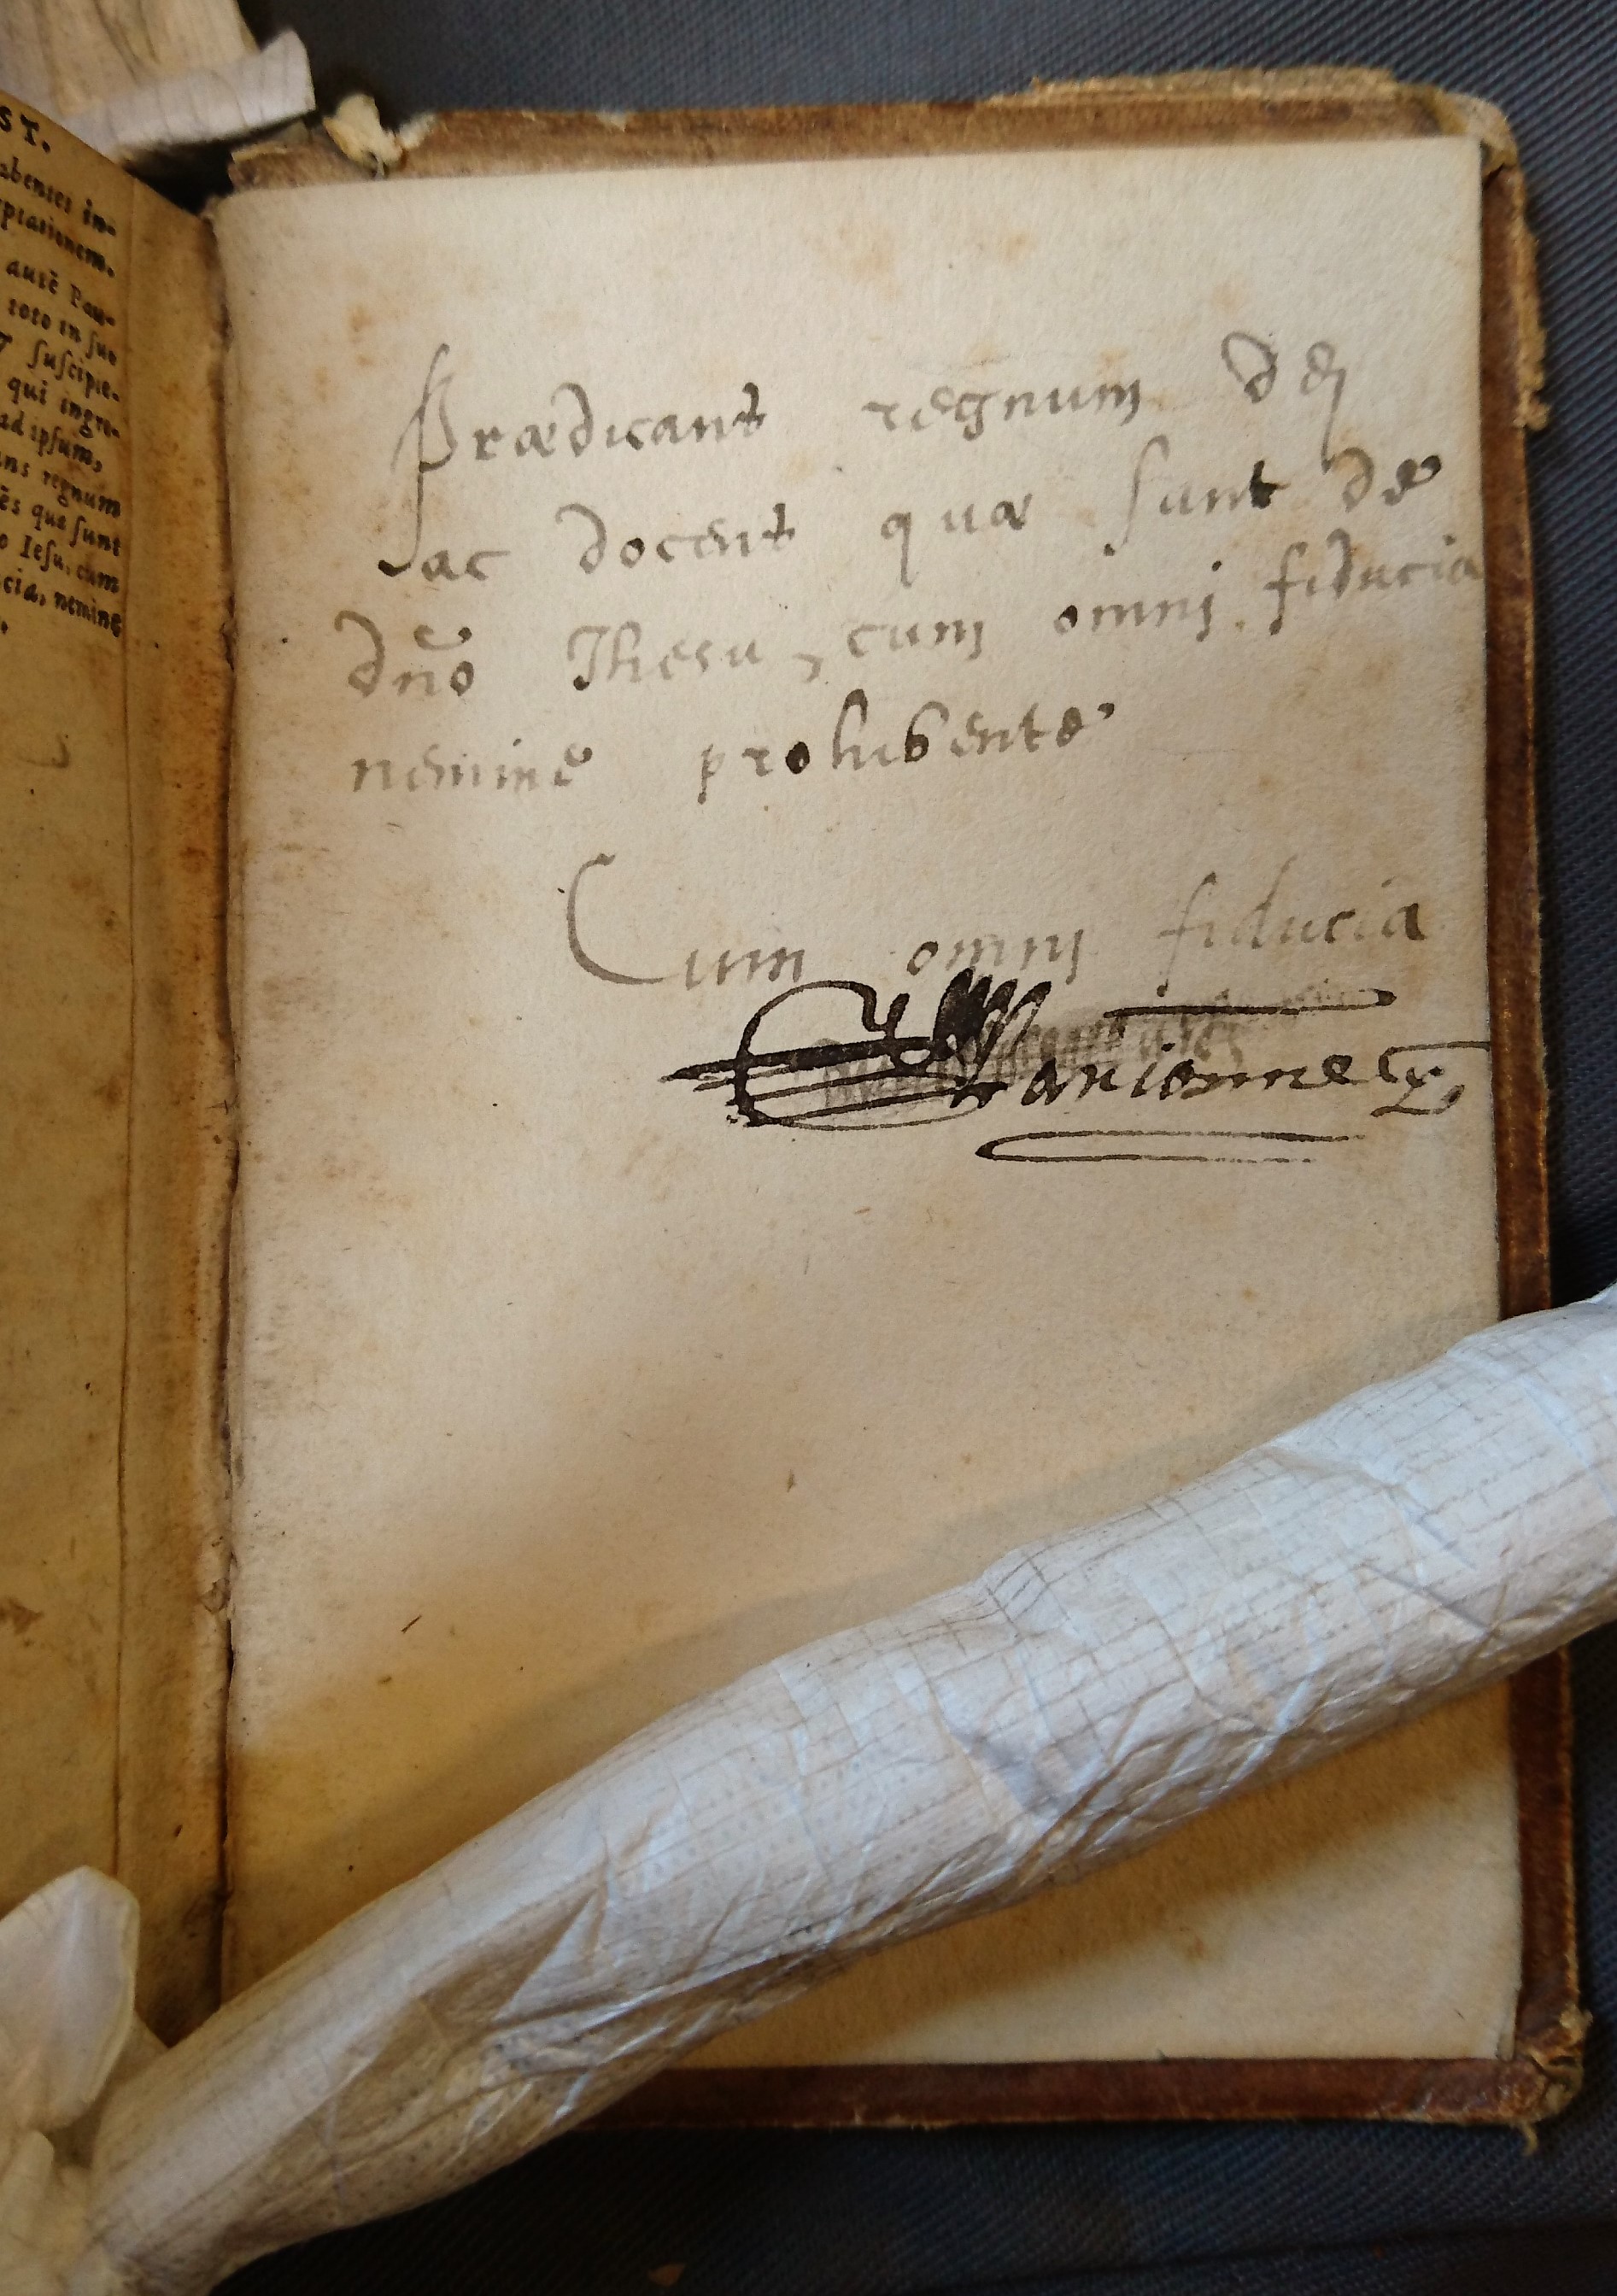 ST.
abentes in-
ptationem.
autē Pau-
toto in suo
suscipie-
qui ingre-
ad ipsum,
ans regnum
ēs quę sunt
o Iesu, cum
cia, nemine
Prædicant regnum dej
ac docent quæ sunt de
dn̄o Jhesu, cum omnj fiducia
nemine prohibente
Cum omnj fiducia